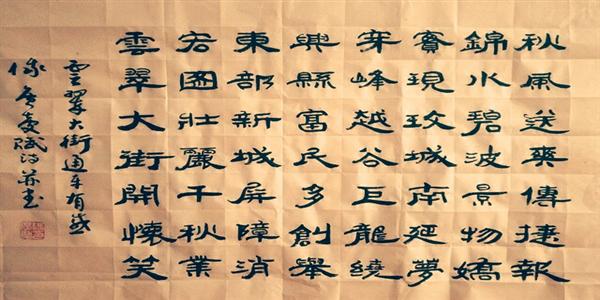 秋風送爽傳捷報
錦水碧波景物嬌
實現玫城南延夢
穿峰越谷巨龍繞
興縣富民多創舉
東部新城屏障消
宏圖壯麗千秋業
雲翠大街開懷笑
雲翠大街通車有感
賦詩并書